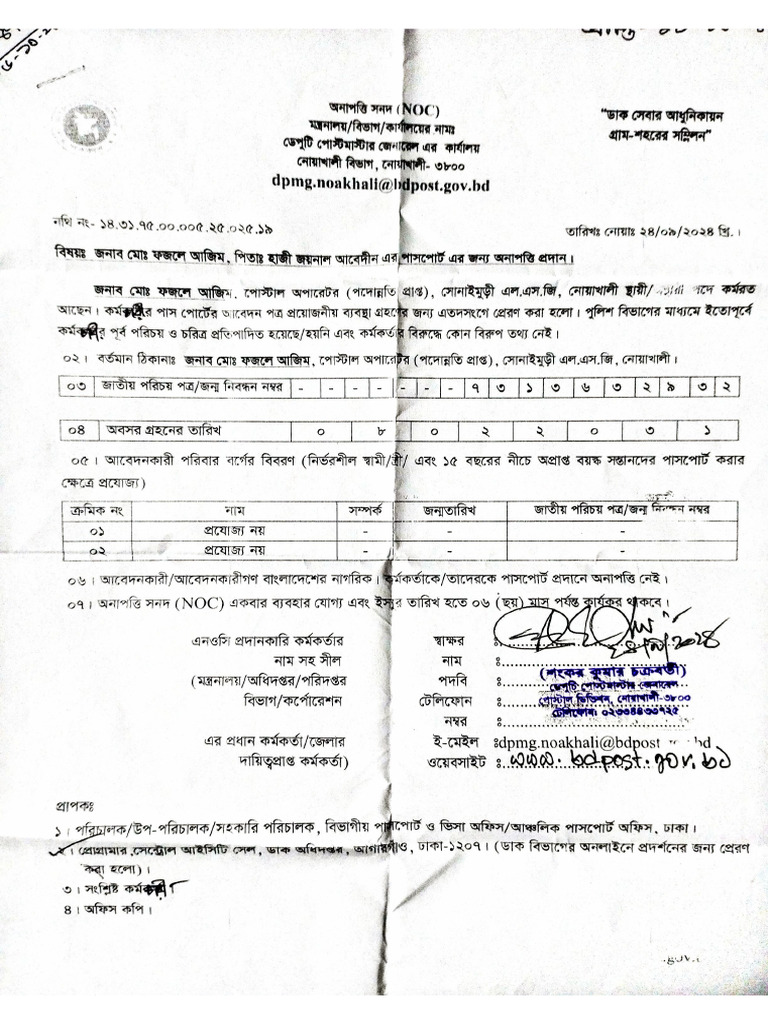 অনাপত্তি সনদ (NOC)
মন্ত্রনালয়/বিভাগ/কার্যালয়ের নামঃ
ডেপুটি পোস্টমাস্টার জেনারেল এর কার্যালয়
নোয়াখালী বিভাগ, নোয়াখালী- ৩৮০০
dpmg.noakhali@bdpost.gov.bd
"ডাক সেবার আধুনিকায়ন
গ্রাম-শহরের সম্মিলন"
নথি নং- ১৪.৩১.৭৫.০০.০০৫.২৫.০২৫.১৯
তারিখঃ নোয়াঃ ২৪/০৯/২০২৪ খ্রি.।
বিষয়ঃ জনাব মোঃ ফজলে আজিম, পিতাঃ হাজী জয়নাল আবেদীন এর পাসপোর্ট এর জন্য অনাপত্তি প্রদান।
জনাব মোঃ ফজলে আজিম, পোস্টাল অপারেটর (পদোন্নতি প্রাপ্ত), সোনাইমুড়ী এল.এস.জি, নোয়াখালী স্থায়ী/ পদে কর্মরত
আছেন। পাস পোর্টের আবেদন পত্র প্রয়োজনীয় ব্যবস্থা গ্রহণের জন্য এতদসংগে প্রেরণ করা হলো। পুলিশ বিভাগের মাধ্যমে ইতোপূর্বে
পূর্ব পরিচয় ও চরিত্র প্রতিপাদিত হয়েছে/হয়নি এবং কর্মকর্তার বিরুদ্ধে কোন বিরুপ তথ্য নেই।
০২। বর্তমান ঠিকানাঃ জনাব মোঃ ফজলে আজিম, পোস্টাল অপারেটর (পদোন্নতি প্রাপ্ত), সোনাইমুড়ী এল.এস.জি, নোয়াখালী।
০৩ জাতীয় পরিচয় পত্র/জন্ম নিবন্ধন নম্বর - - - - - - - ৭ ৩ ১ ৩ ৬ ৩ ২ ৯ ৩ ২
০৪ অবসর গ্রহনের তারিখ ০ ৮ ০ ২ ২ ০ ৩ ১
০৫। আবেদনকারী পরিবার বর্গের বিবরণ (নির্ভরশীল স্বামী/স্ত্রী/ এবং ১৫ বছরের নীচে অপ্রাপ্ত বয়স্ক সন্তানদের পাসপোর্ট করার
ক্ষেত্রে প্রযোজ্য)
ক্রমিক নং নাম সম্পর্ক জন্মতারিখ জাতীয় পরিচয় পত্র/জন্ম নিবন্ধন নম্বর
০১ প্রযোজ্য নয় - - -
০২ প্রযোজ্য নয় - - -
০৬। আবেদনকারী/আবেদনকারীগণ বাংলাদেশের নাগরিক। কর্মকর্তাকে/তাদেরকে পাসপোর্ট প্রদানে অনাপত্তি নেই।
০৭। অনাপত্তি সনদ (NOC) একবার ব্যবহার যোগ্য এবং ইস্যুর তারিখ হতে ০৬ (ছয়) মাস পর্যন্ত কার্যকর থাকবে।
এনওসি প্রদানকারি কর্মকর্তার
নাম সহ সীল
(মন্ত্রনালয়/অধিদপ্তর/পরিদপ্তর
বিভাগ/কর্পোরেশন
এর প্রধান কর্মকর্তা/জেলার
দায়িত্বপ্রাপ্ত কর্মকর্তা)
স্বাক্ষর :
নাম :
পদবি :
টেলিফোন :
নম্বর :
(শংকর কুমার চক্রবর্তী)
ডেপুটি পোস্টমাস্টার জেনারেল
পোস্টাল ডিভিশন, নোয়াখালী-৩৮০০
ই-মেইল :dpmg.noakhali@bdpost
ওয়েবসাইট : www.bdpost.gov.bd
প্রাপকঃ
১। পরিচালক/উপ-পরিচালক/সহকারি পরিচালক, বিভাগীয় পাসপোর্ট ও ভিসা অফিস/আঞ্চলিক পাসপোর্ট অফিস, ঢাকা।
২। প্রোগ্রামার, সেন্ট্রাল আইসিটি সেল, ডাক অধিদপ্তর, আগারগাঁও, ঢাকা-১২০৭। (ডাক বিভাগের অনলাইনে প্রদর্শনের জন্য প্রেরণ
করা হলো)।
৩। সংশ্লিষ্ট
৪। অফিস কপি।